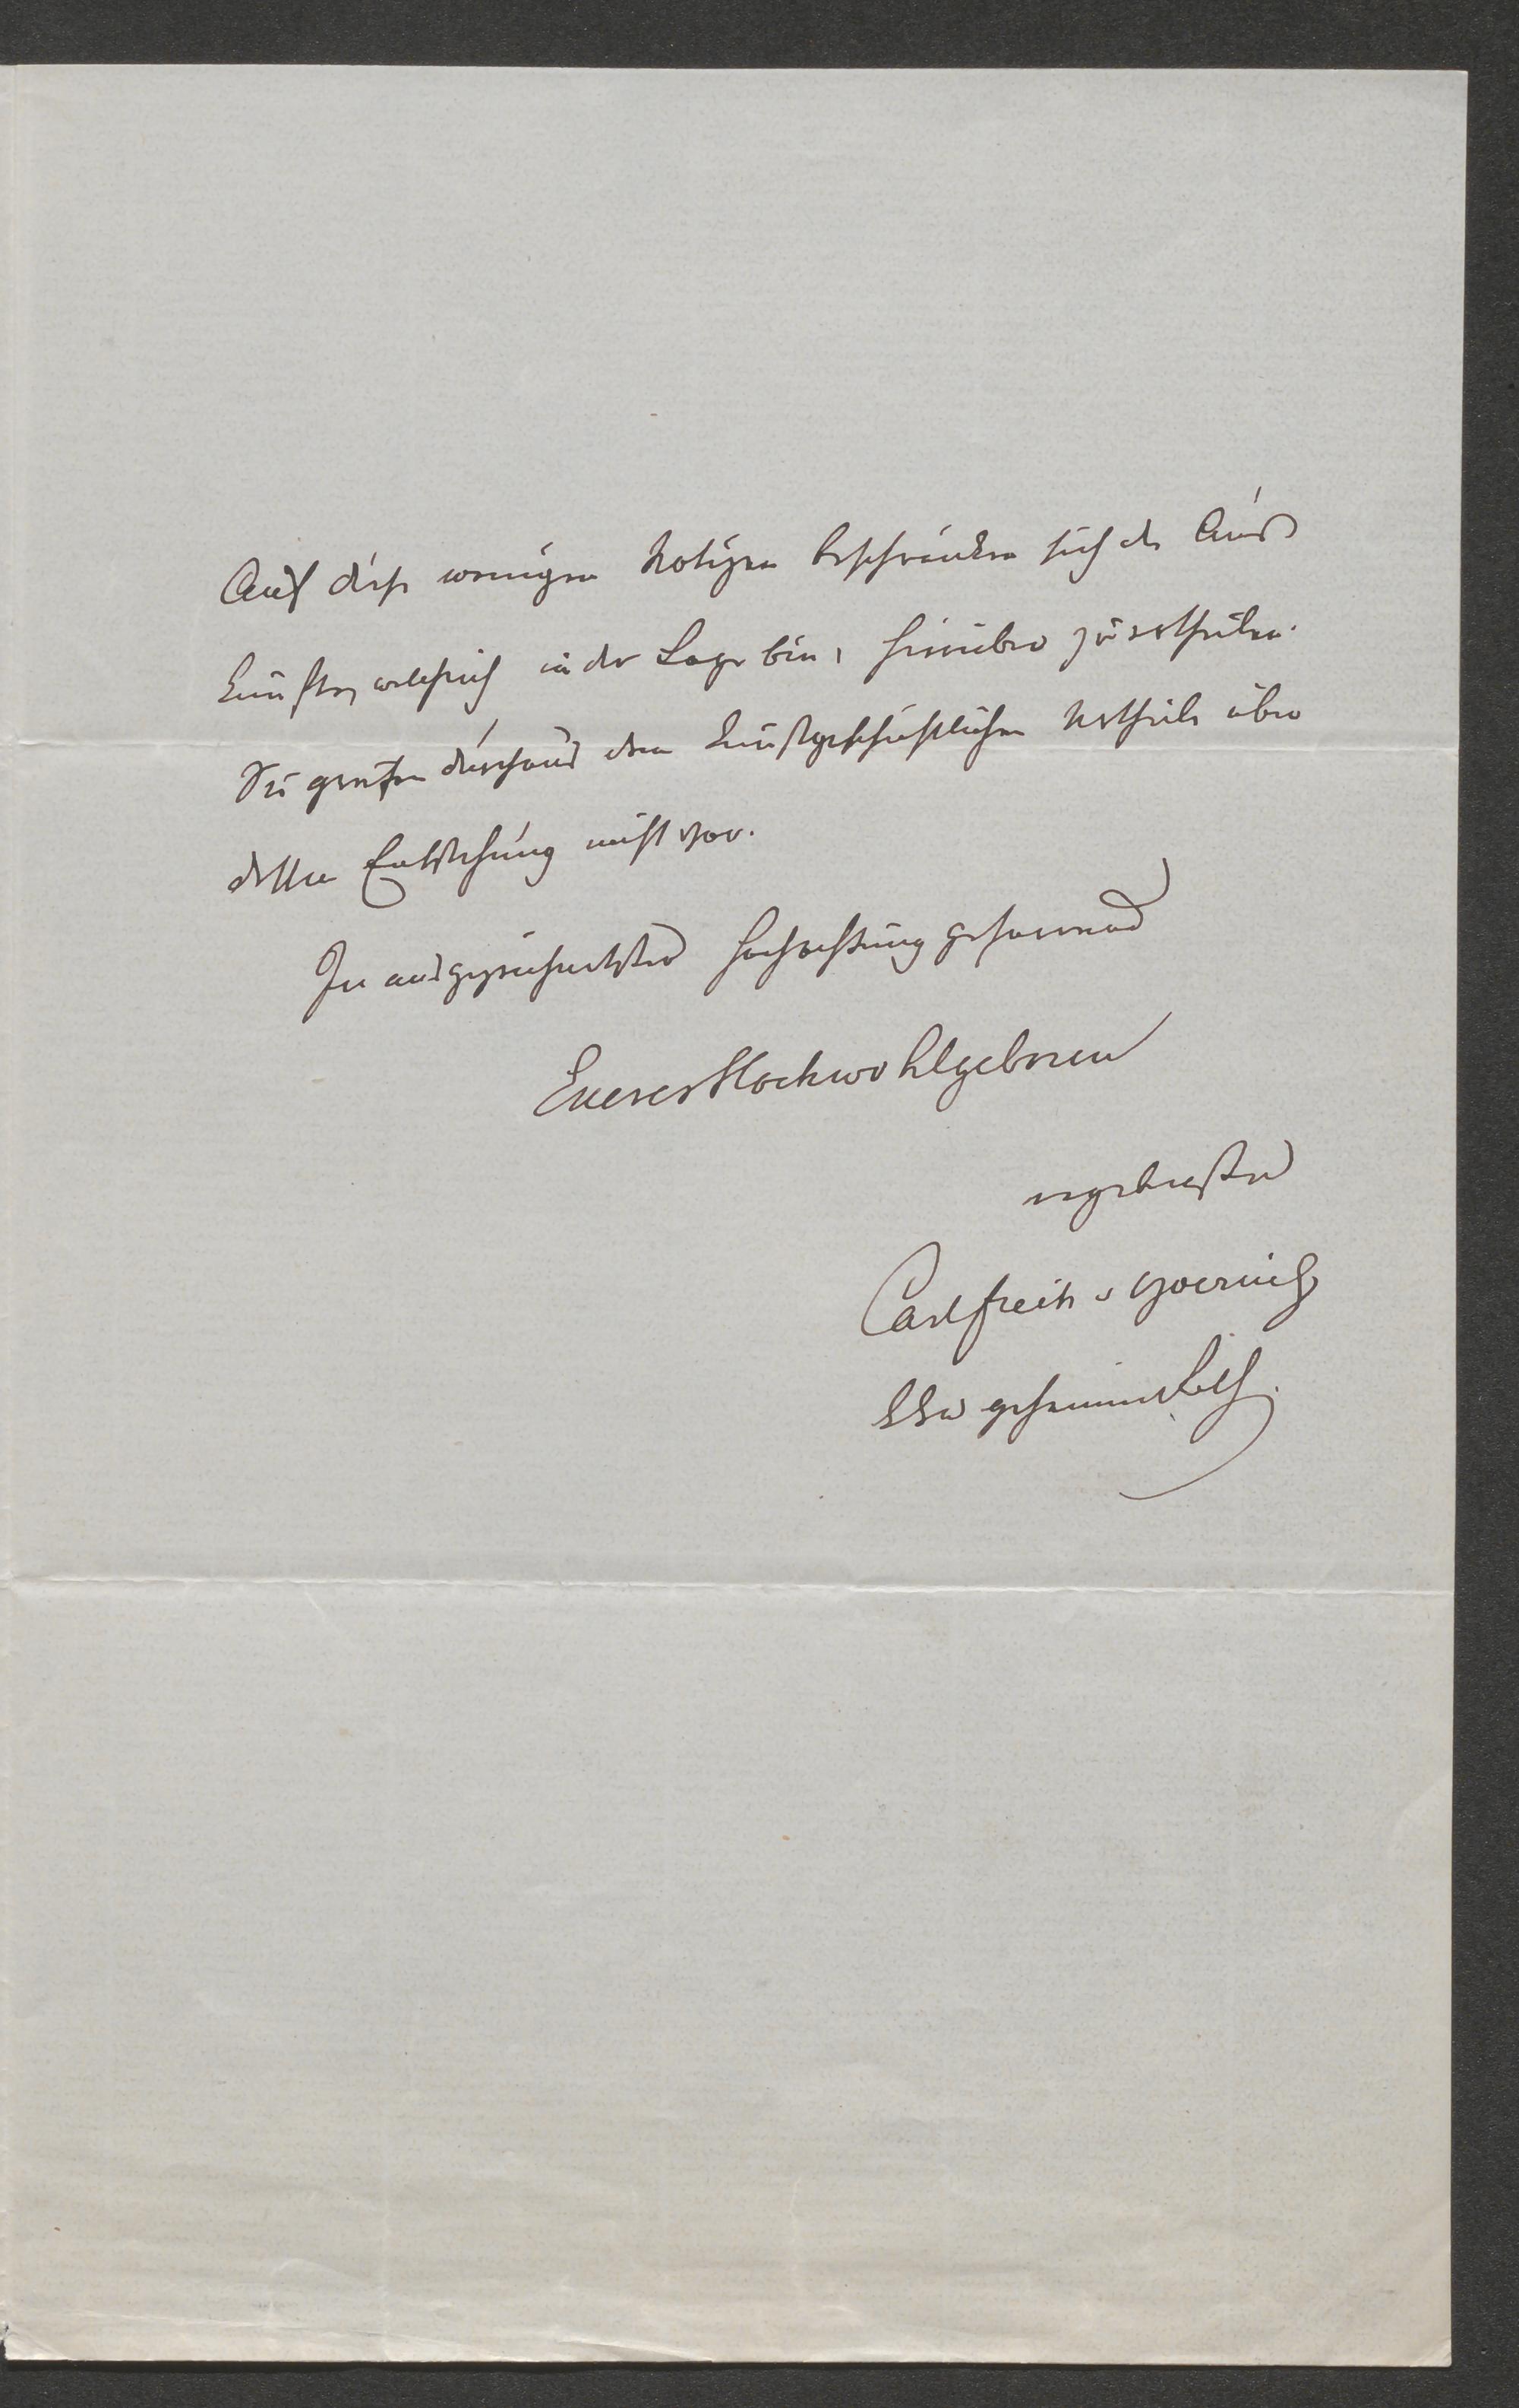 Auf diese wenigen Notizen beschränken sich die Aus
künfte, welche ich in der Lage bin, hierüber zu ertheilen.
Sie greifen durchaus dem kunstgeschichtlichen Urtheile über
dessen Entstehung nicht vor.
In ausgezeichnetster Hochachtung geharrend
Euerer Hochwohlgeboren
ergebenster
Carl Freih v Czoernig
k k w geheimer Rath.